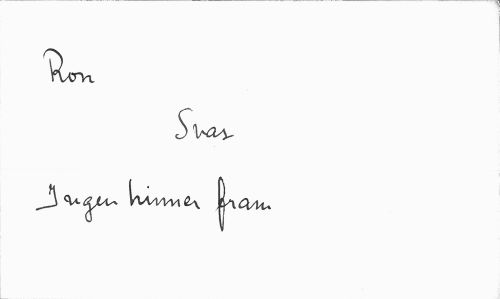 Ron
Svar
Ingen hinner fram